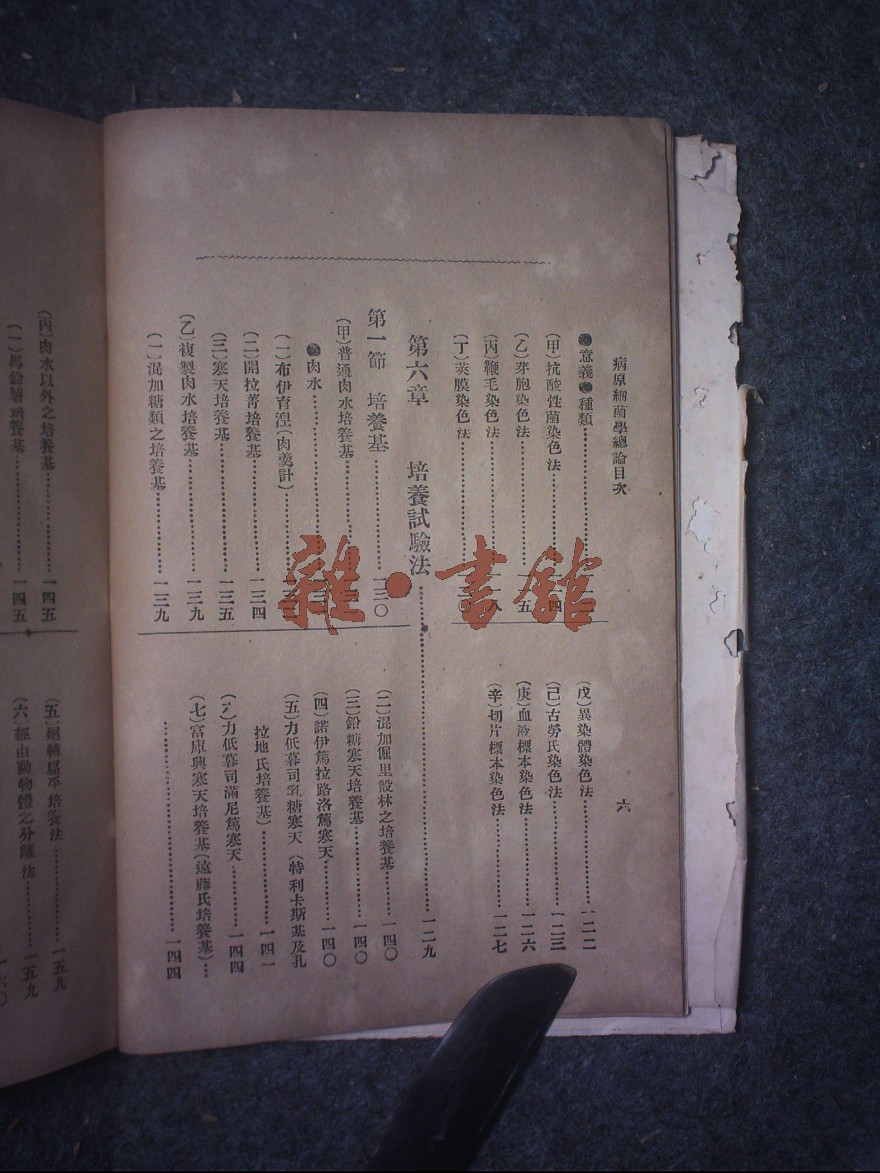 病原細菌學總論目次
六
●意義●種類
(甲)抗酸性菌染色法
(乙)芽胞染色法
(丙)鞭毛染色法
(丁)莢膜染色法
(戊)異染體染色法 一二二
(己)古勞氏染色法 一二三
(庚)血液標本染色法 一二六
(辛)切片標本染色法 一二七
第六章 培養試驗法 一二九
第一節 培養基 一三〇
(甲)普通肉水培養基
●肉水
(一)布伊育湼(肉羹汁)
(二)開拉菁培養基 一三四
(三)寒天培養基 一三五
(乙)複製肉水培養基 一三九
(一)混加糖類之培養基 一三九
(二)混加倔里設林之培養基 一四〇
(三)鉛糖寒天培養基 一四〇
(四)諾伊篤拉路洛篤寒天 一四〇
(五)力低暮司乳糖寒天(特利卡斯基及孔
拉地氏培養基) 一四一
(六)力低暮司滿尼篤寒天 一四四
(七)富庫興寒天培養基(遠藤氏培養基)
一四四
(丙)肉水以外之培養基 一四五
(一)馬鈴薯培養基 一四五
(五)廻轉扁平培養法 一五九
(六)經由動物體之分離法 一五九
一六〇
雜·書館